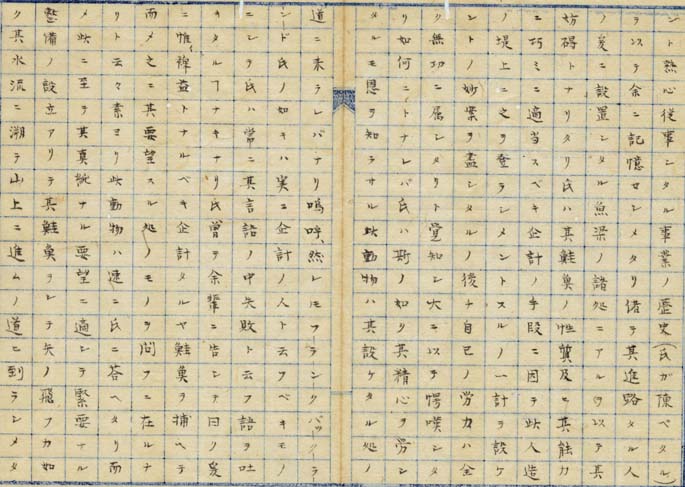 ント熱心從事シタル事業ノ歴史(氏ガ陳ベタル)
ヲ以テ余ニ記憶セシメタリ偖テ其進路タル人
ノ爰ニ設置シタル魚梁ノ諸処ニアルヲ以テ其
妨碍トナリタリ氏ハ其鮭魚ノ性質及ヒ其能力
ニ巧ミニ適当スベキ企計ノ手段ニ因テ此人造
ノ堤上ニ之ヲ登ラシメントスルノ一計ヲ設ケ
ントノ妙案ヲ盡シタルノ後ナ自己ノ労力ハ全
ク無功ニ属シタリト覚知シ大ニ以テ愕嘆シタ
リ如何ニトナレバ氏ハ斯ノ如ク其精心ヲ労シ
タルモ恩ヲ知ラサル此動物ハ其設ケタル処ノ
道ニ来ラレバナリ嗚呼、然レモフランクバックラ
ンド氏ノ如キハ実ニ企計ノ人ト云フベキモノ
ニシテ氏ハ常ニ其言語ノ中失敗ト云フ語ヲ吐
キタルヿナキナリ氏曽テ余輩ニ告ケテ曰ク爰
ニ惟裨益トナルベキ企計タルヤ鮭魚ヲ捕ヘテ
而メ之ニ其要望スル処ノモノヲ問フニ在ルナ
リト云々素ヨリ此動物ハ速ニ氏ニ答ヘタリ而
メ此ニ至テ其真純ナル要望ニ適シテ緊要ナル
整備ノ設立アリテ其鮭魚ヲシテ矢ノ飛フカ如
ク其水流ニ溯テ山上ニ進ムノ道ヒ到ランメタ